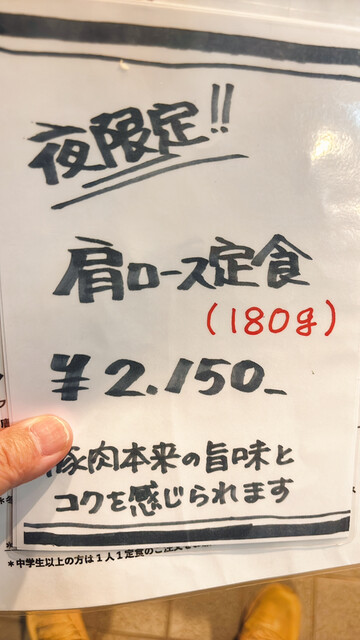 夜限定!!
肩ロース定食
(180g)
¥2.150_
豚肉本来の旨味と
コクを感じられます
*中学生以上の方は1人1定食のご注文を